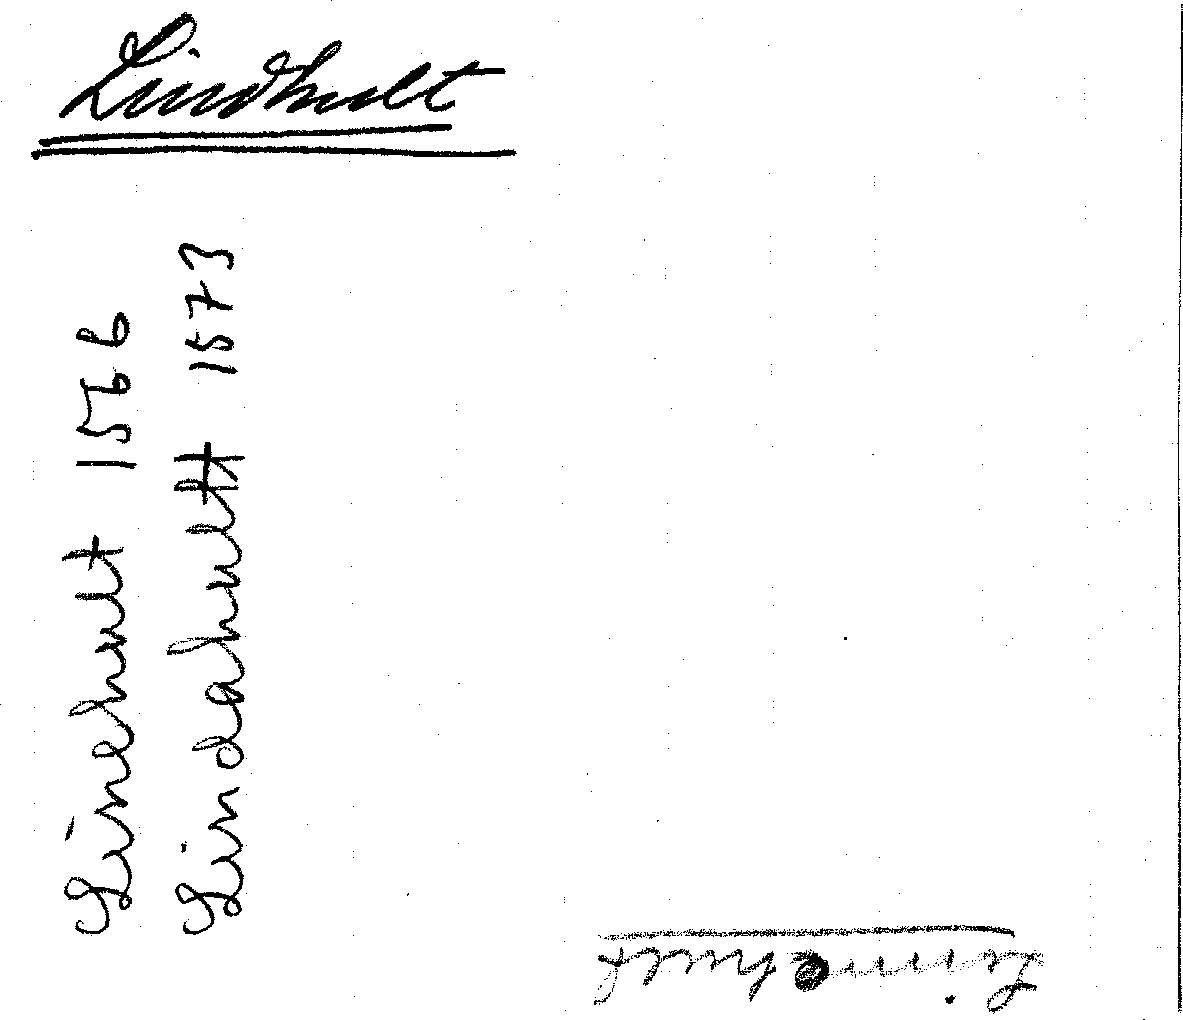 Lindhult
Linehult 1566
Lindahultt 1573
Linnehult